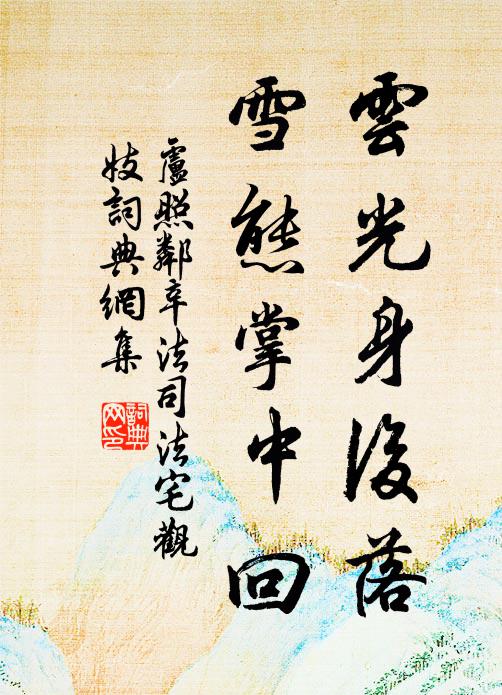 雲光身後落
雪態掌中回
盧照鄰辛法司法宅觀
妓詞典網集
詞典網印